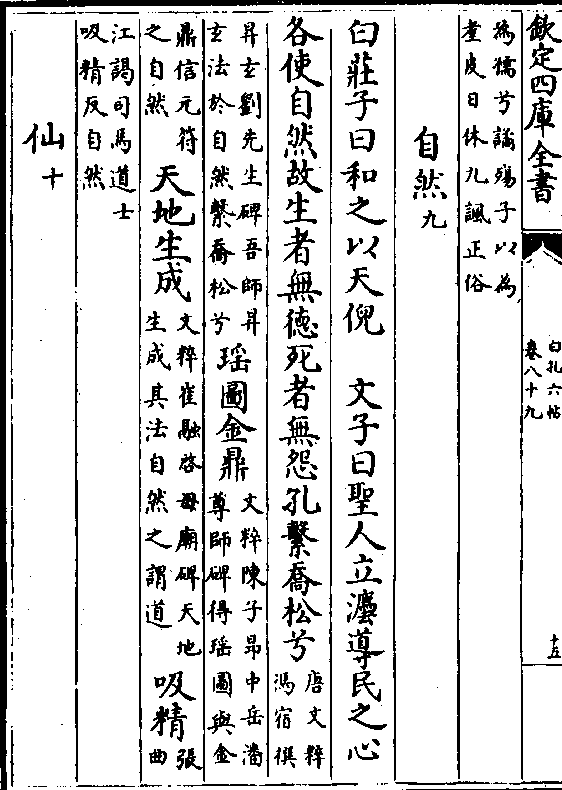 欽定四庫全書
白孔六帖
卷八十九
十五
為懦兮謠殤子以為
耊皮日休九諷正俗
自然九
白莊子曰和之以天倪 文子曰聖人立灋導民之心
各使自然故生者無德死者無怨孔繫喬松兮
唐文粹
馮宿撰
昇玄劉先生碑吾師昇
玄法於自然繫喬松兮
瑶圖金鼎
文粹陳子昂中岳潘
尊師碑得瑶圖與金
鼎信元符
之自然
天地生成
文粹崔融啓母廟碑天地
生成其法自然之謂道
吸精
張
曲
江謁司馬道士
吸精反自然
仙十